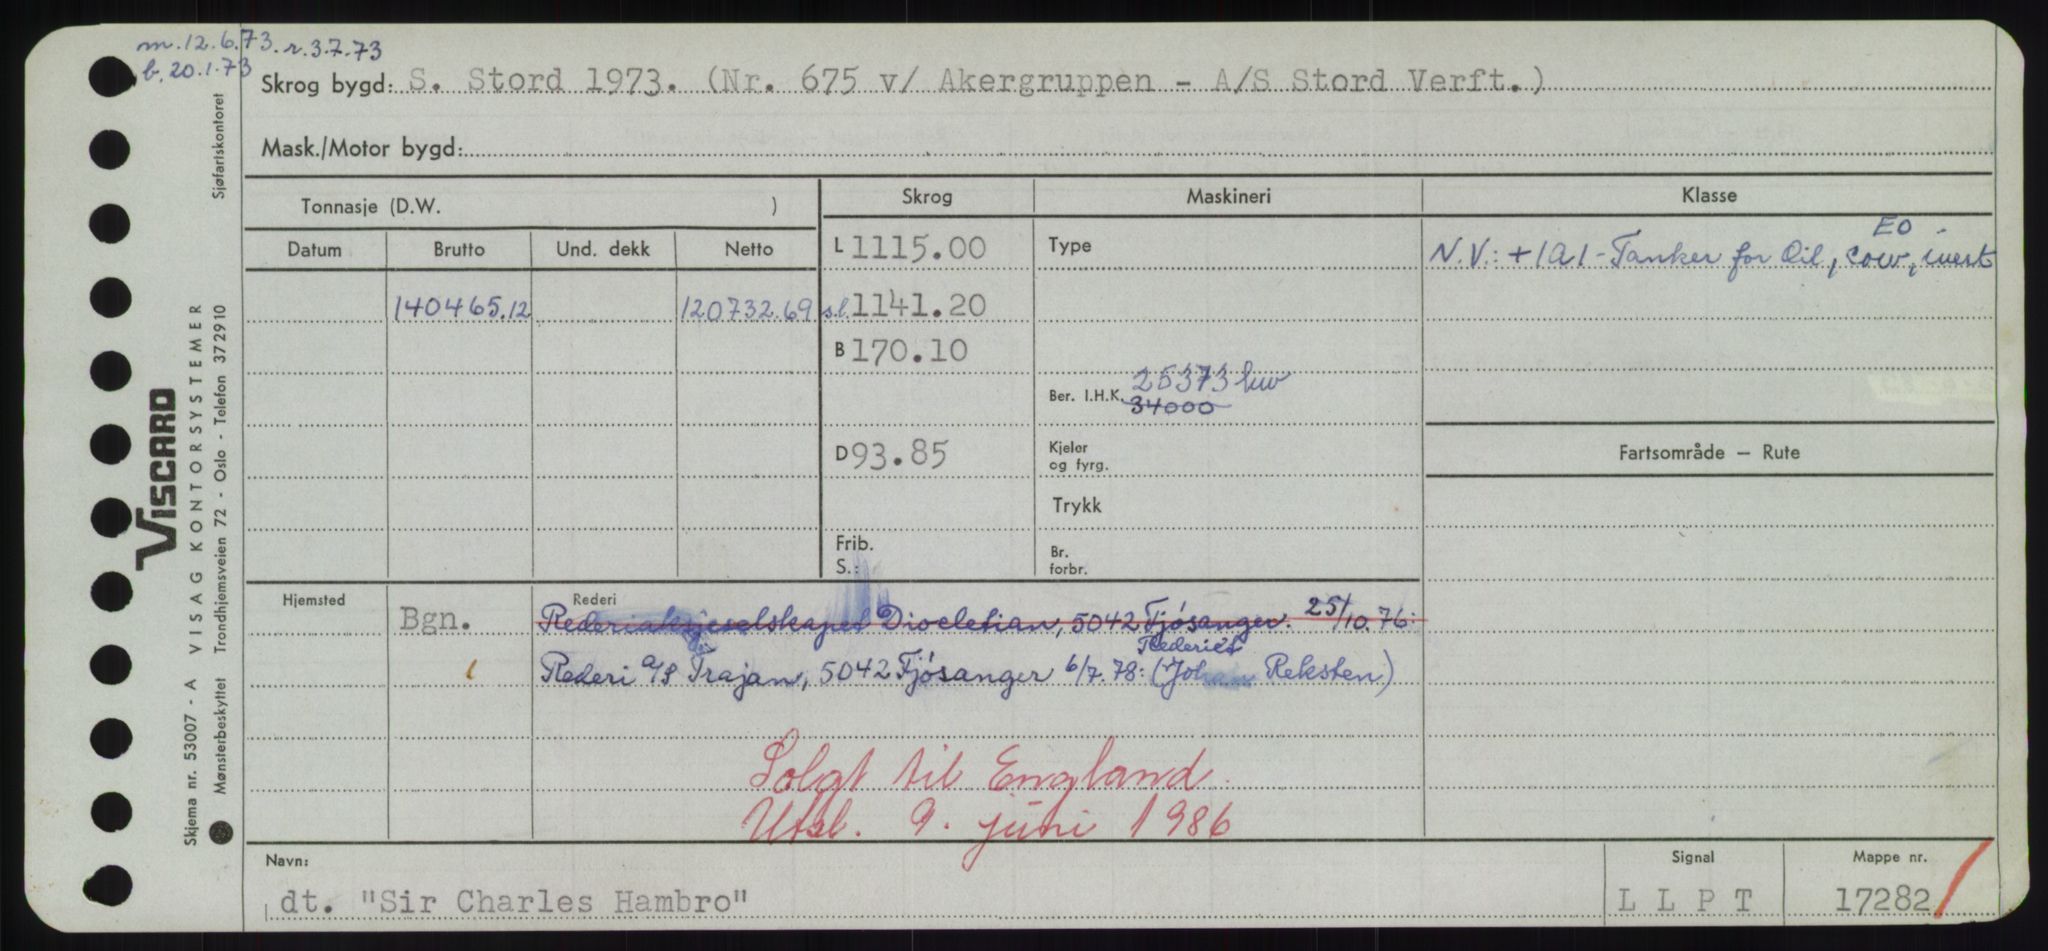 m. 12.6.73. r. 3.7.73
b. 20.1.73
Skrog bygd: S. Stord 1973. (Nr. 675 v/ Akergruppen - A/S Stord Verft.)
Mask./Motor bygd:
Tonnasje (D.W. )
Skrog
Maskineri
Klasse
Datum
Brutto
Und. dekk
Netto
L 1115.00
Type
EO
N.V.: +1A1-Tanker for Oil, cow, inert
140465.12
120732.69
s.l. 1141.20
B 170.10
25373 hw
Ber. I.H.K. 34000
D 93.85
Kjeler
og fyrg.
Fartsområde — Rute
Trykk
Frib.
S.:
Br.
forbr.
Hjemsted
Bgn.
Rederi
Rederiaksjeselskapet Diocletian, 5042 Fjösanger. 25/10.76:
Rederiet
Rederi a/s Trajan, 5042 Fjösanger 6/7.78: (Johan Reksten)
Solgt til England.
Utsl. 9. juni 1986
Navn:
dt. "Sir Charles Hambro"
Signal
L L P T
Mappe nr.
17282
VISCARD
Skjema nr. 53007 - A VISAG KONTORSYSTEMER
Mønsterbeskyttet Trondhjemsveien 72 - Oslo - Telefon 372910
Sjøfartskontoret